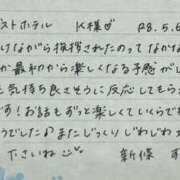 ストホテル K様♡ R8.5.6
けながら挨拶されたのってなかな
が最初から楽しくなる予感がし
も気持ち良さそうに反応してもら
す!お話もずっと楽しくていくらでも
うでした♪またじっくりじわじわ
下さいね 新條